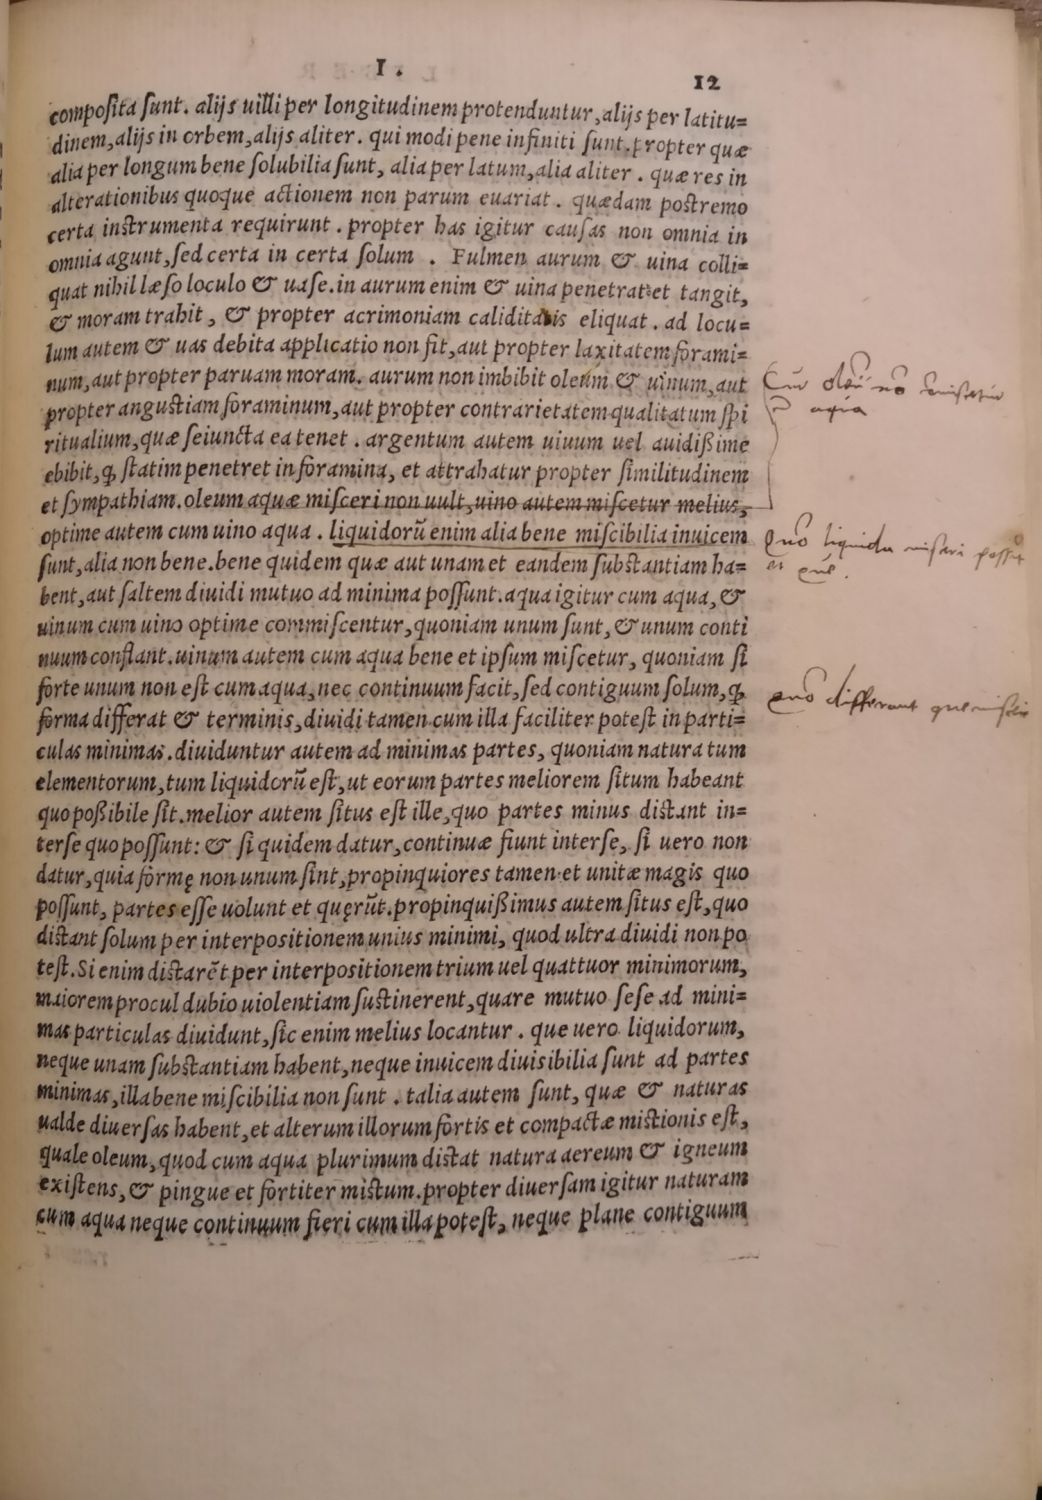 I.
12
compoſita ſunt. alijs uilli per longitudinem protenduntur, alijs per latitu=
dinem, alijs in orbem, alijs aliter. qui modi pene infiniti ſunt. propter quæ
alia per longum bene ſolubilia ſunt, alia per latum, alia aliter. quæ res in
alterationibus quoque actionem non parum euariat. quædam poſtremo
certa inſtrumenta requirunt. propter has igitur cauſas non omnia in
omnia agunt, ſed certa in certa ſolum. Fulmen aurum & uina colli=
quat nihil læſo loculo & uaſe. in aurum enim & uina penetrat et tangit,
& moram trahit, & propter acrimoniam caliditatis eliquat. ad locu=
lum autem & uas debita applicatio non fit, aut propter laxitatem forami=
num, aut propter paruam moram. aurum non imbibit oleum & uinum, aut
propter anguſtiam foraminum, aut propter contrarietatem qualitatum ſpi
ritualium, quæ ſeiuncta ea tenet. argentum autem uiuum uel auidißime
ebibit, ꝙ ſtatim penetret in foramina, et attrahatur propter ſimilitudinem
et ſympathiam. oleum aquæ miſceri non uult, uino autem miſcetur melius,
optime autem cum uino aqua. liquidorũ enim alia bene miſcibilia inuicem
ſunt, alia non bene. bene quidem quæ aut unam et eandem ſubſtantiam ha=
bent, aut ſaltem diuidi mutuo ad minima poſſunt. aqua igitur cum aqua, &
uinum cum uino optime commiſcentur, quoniam unum ſunt, & unum conti
nuum conſtant. uinum autem cum aqua bene et ipſum miſcetur, quoniam ſi
forte unum non eſt cum aqua, nec continuum facit, ſed contiguum ſolum, ꝙ
forma differat & terminis, diuidi tamen cum illa faciliter poteſt in parti=
culas minimas. diuiduntur autem ad minimas partes, quoniam natura tum
elementorum, tum liquidorũ eſt, ut eorum partes meliorem ſitum habeant
quo poßibile ſit. melior autem ſitus eſt ille, quo partes minus diſtant in=
terſe quo poſſunt: & ſi quidem datur, continuæ fiunt interſe, ſi uero non
datur, quia formę non unum ſint, propinquiores tamen et unitæ magis quo
poſſunt, partes eſſe uolunt et quęrũt. propinquißimus autem ſitus eſt, quo
diſtant ſolum per interpoſitionem unius minimi, quod ultra diuidi non po
teſt. Si enim diſtarẽt per interpoſitionem trium uel quattuor minimorum,
maiorem procul dubio uiolentiam ſuſtinerent, quare mutuo ſeſe ad mini=
mas particulas diuidunt, ſic enim melius locantur. que uero liquidorum,
neque unam ſubſtantiam habent, neque inuicem diuisibilia ſunt ad partes
minimas, illa bene miſcibilia non ſunt. talia autem ſunt, quæ & naturas
ualde diuerſas habent, et alterum illorum fortis et compactæ miſtionis eſt,
quale oleum, quod cum aqua plurimum diſtat natura aereum & igneum
exiſtens, & pingue et fortiter miſtum. propter diuerſam igitur naturam
cum aqua neque continuum fieri cum illa poteſt, neque plane contiguum
Cur
liquida misceri
differunt